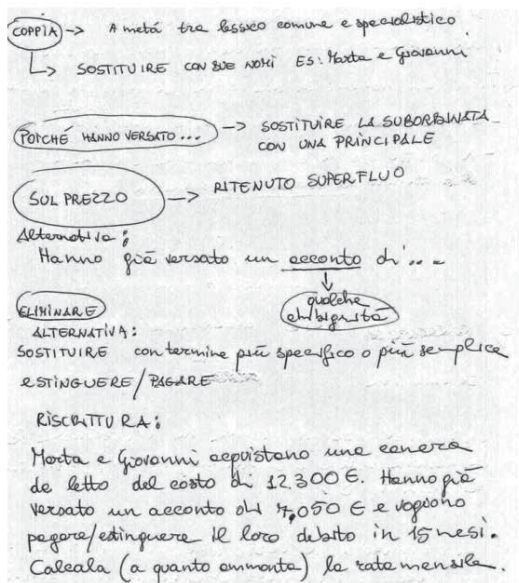 COPPIA -> A metá tra lessico comune e specialistico
SOSTITUIRE CON DUE NOMI ES: Marta e Giovanni
POICHÉ HANNO VERSATO... -> SOSTITUIRE LA SUBORDINATA
CON UNA PRINCIPALE
SUL PREZZO -> RITENUTO SUPERFLUO
Alternativa:
Hanno già versato un acconto di...
qualche
ambiguità
ELIMINARE
ALTERNATIVA:
SOSTITUIRE con termine più specifico o più semplice
ESTINGUERE/PAGARE
RISCRITTURA:
Marta e Giovanni acquistano una camera
da letto del costo di 12.300 €. Hanno già
versato un acconto di 7,050 € e vogliono
pagare/estinguere il loro debito in 15 mesi.
Calcola (a quanto ammonta) la rata mensile.